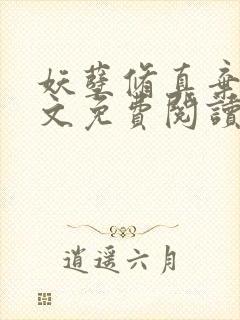 妖孽脩真棄
文免費閱讀
逍遥六月